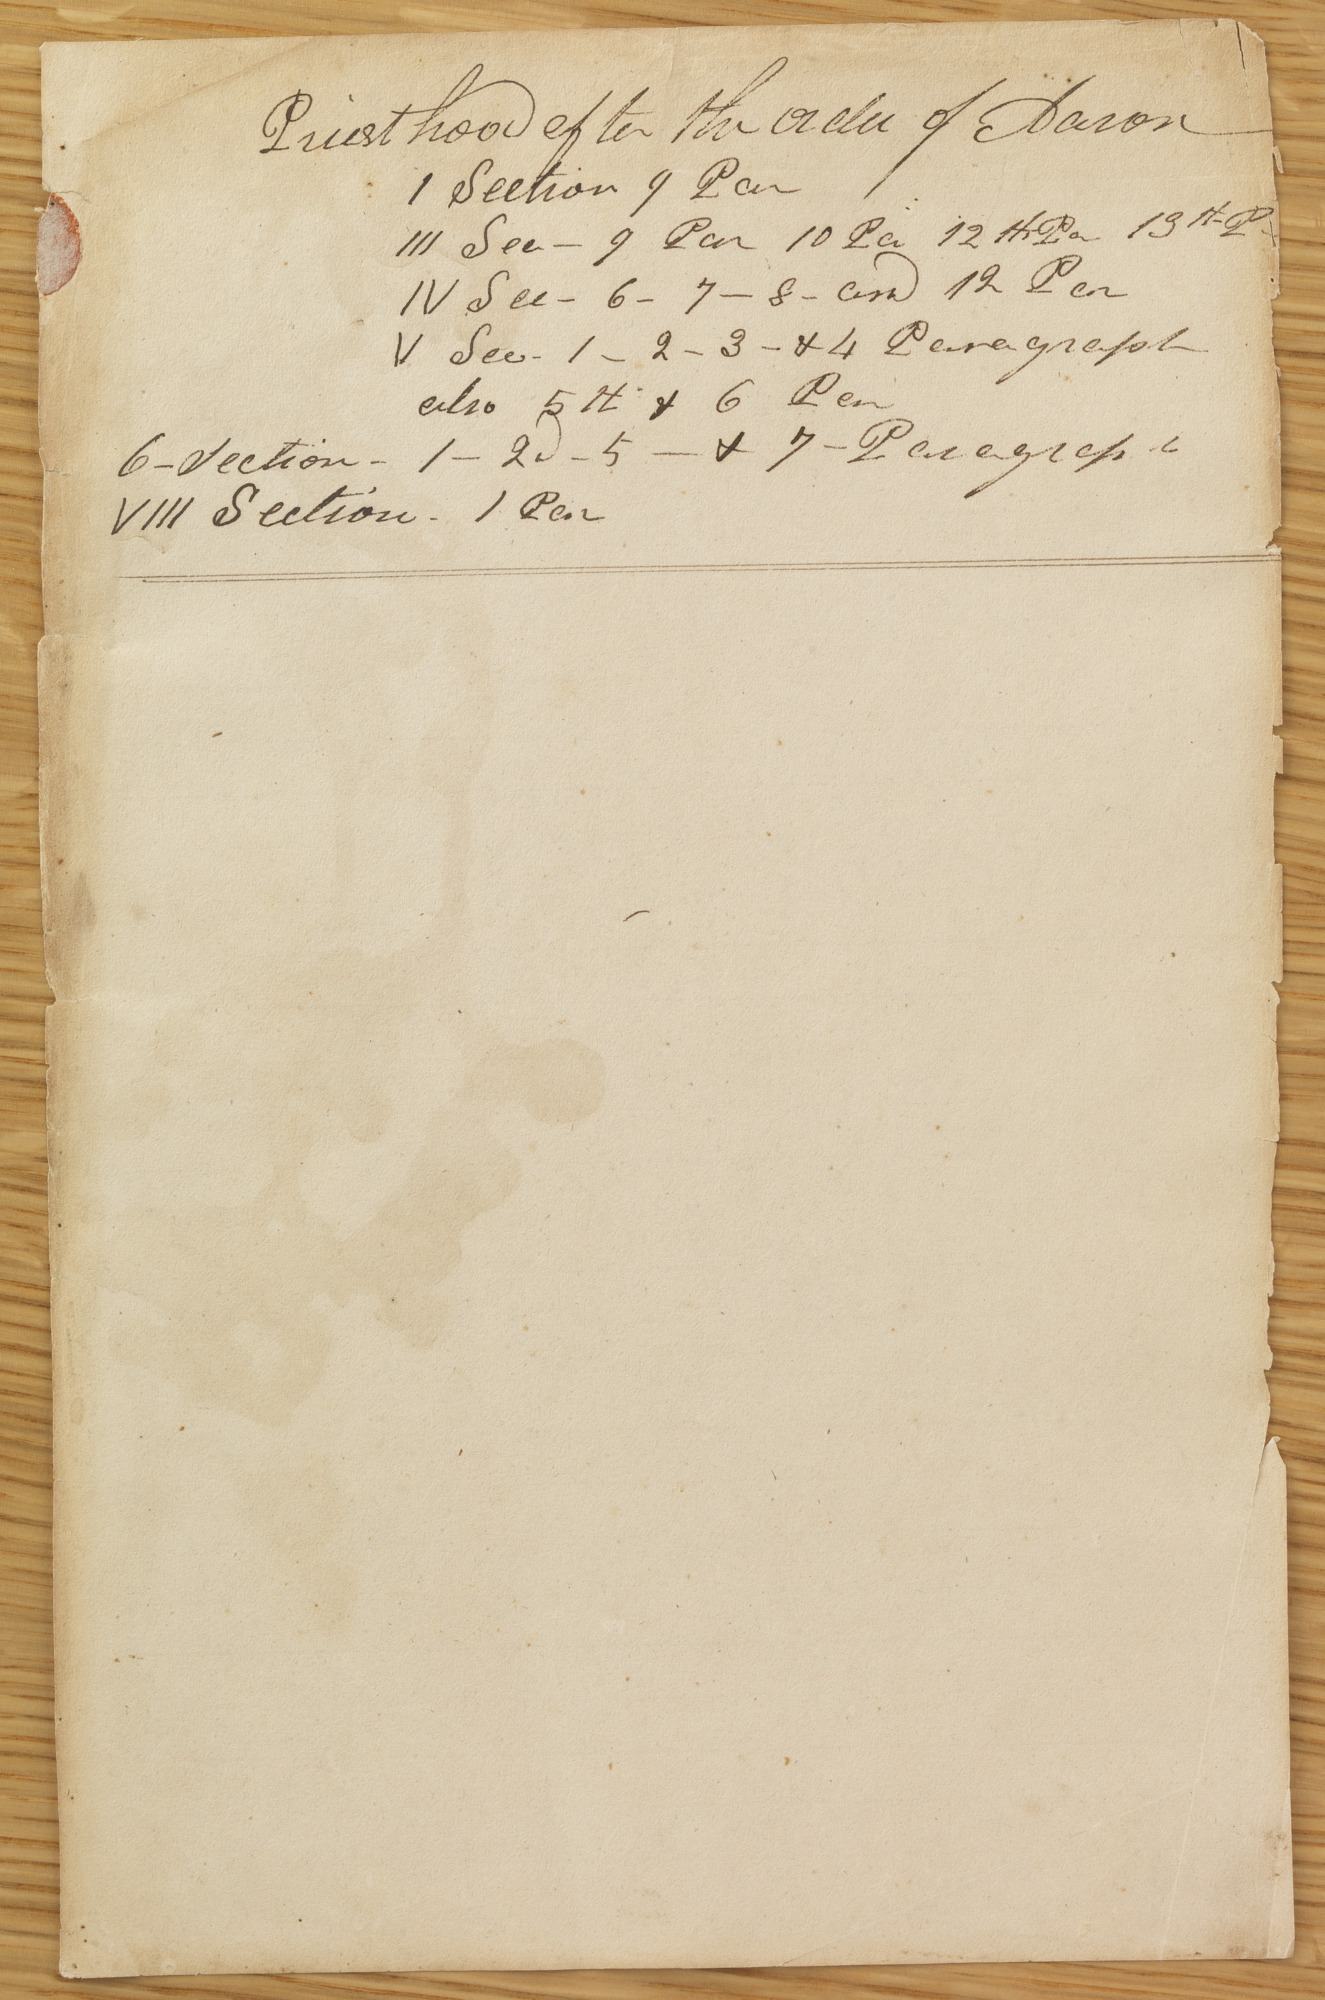 Priesthood after the order of Aaron
I Section 9 Par
III Sec – 9 Par 10 Pa 12th Pa 13th P
IV Sec – 6 – 7 – 8 – and 12 Par
V Sec – 1 – 2 – 3 – & 4 Paragraph
also 5th & 6 Par
6 – Section – 1 – 2d – 5 – & 7 – Paragraph
VIII Section – 1 Par